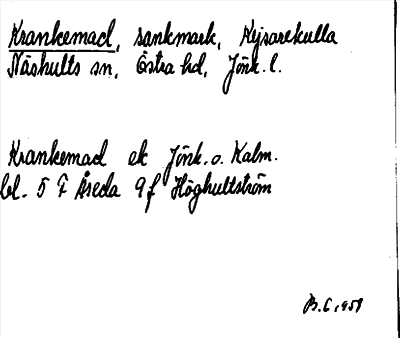 Krankemad, sankmark, Kysarekulla
Näshults sn, Östra hd, Jönk. l.
Krankemad ek Jönk. o. Kalm.
bl. 5 F Åseda 9 f Höghultström
B. E. 1951